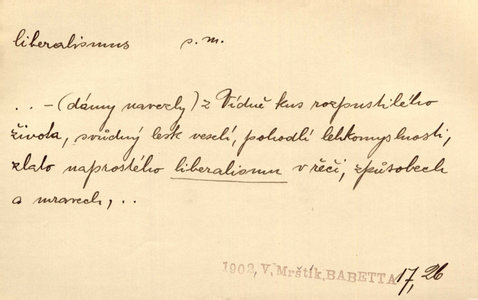 liberalismus s. m.
. . – (dámy navezly) z Vídně kus rozpustilého
života, svůdný lesk veselí, pohodlí lehkomyslnosti,
zlato naprostého liberalismu v řeči, způsobech
a mravech, . .
1902, V. Mrštík, BABETTA 17, 26